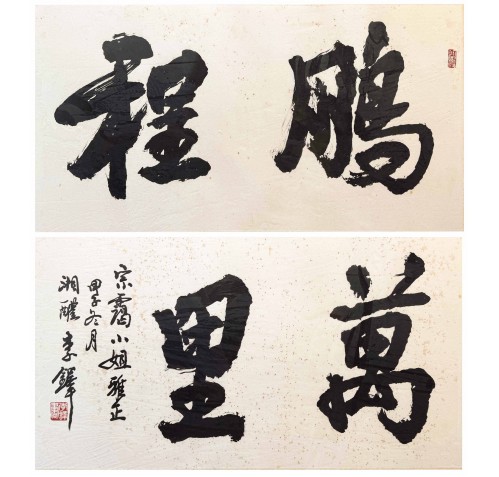 鵬程
萬里
宗靄小姐雅正
甲子冬月
湘醴李鐸